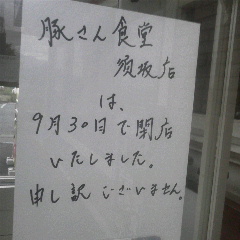 豚さん食堂
須坂店
は、
9月30日で閉店
いたしました。
申し訳ございません。